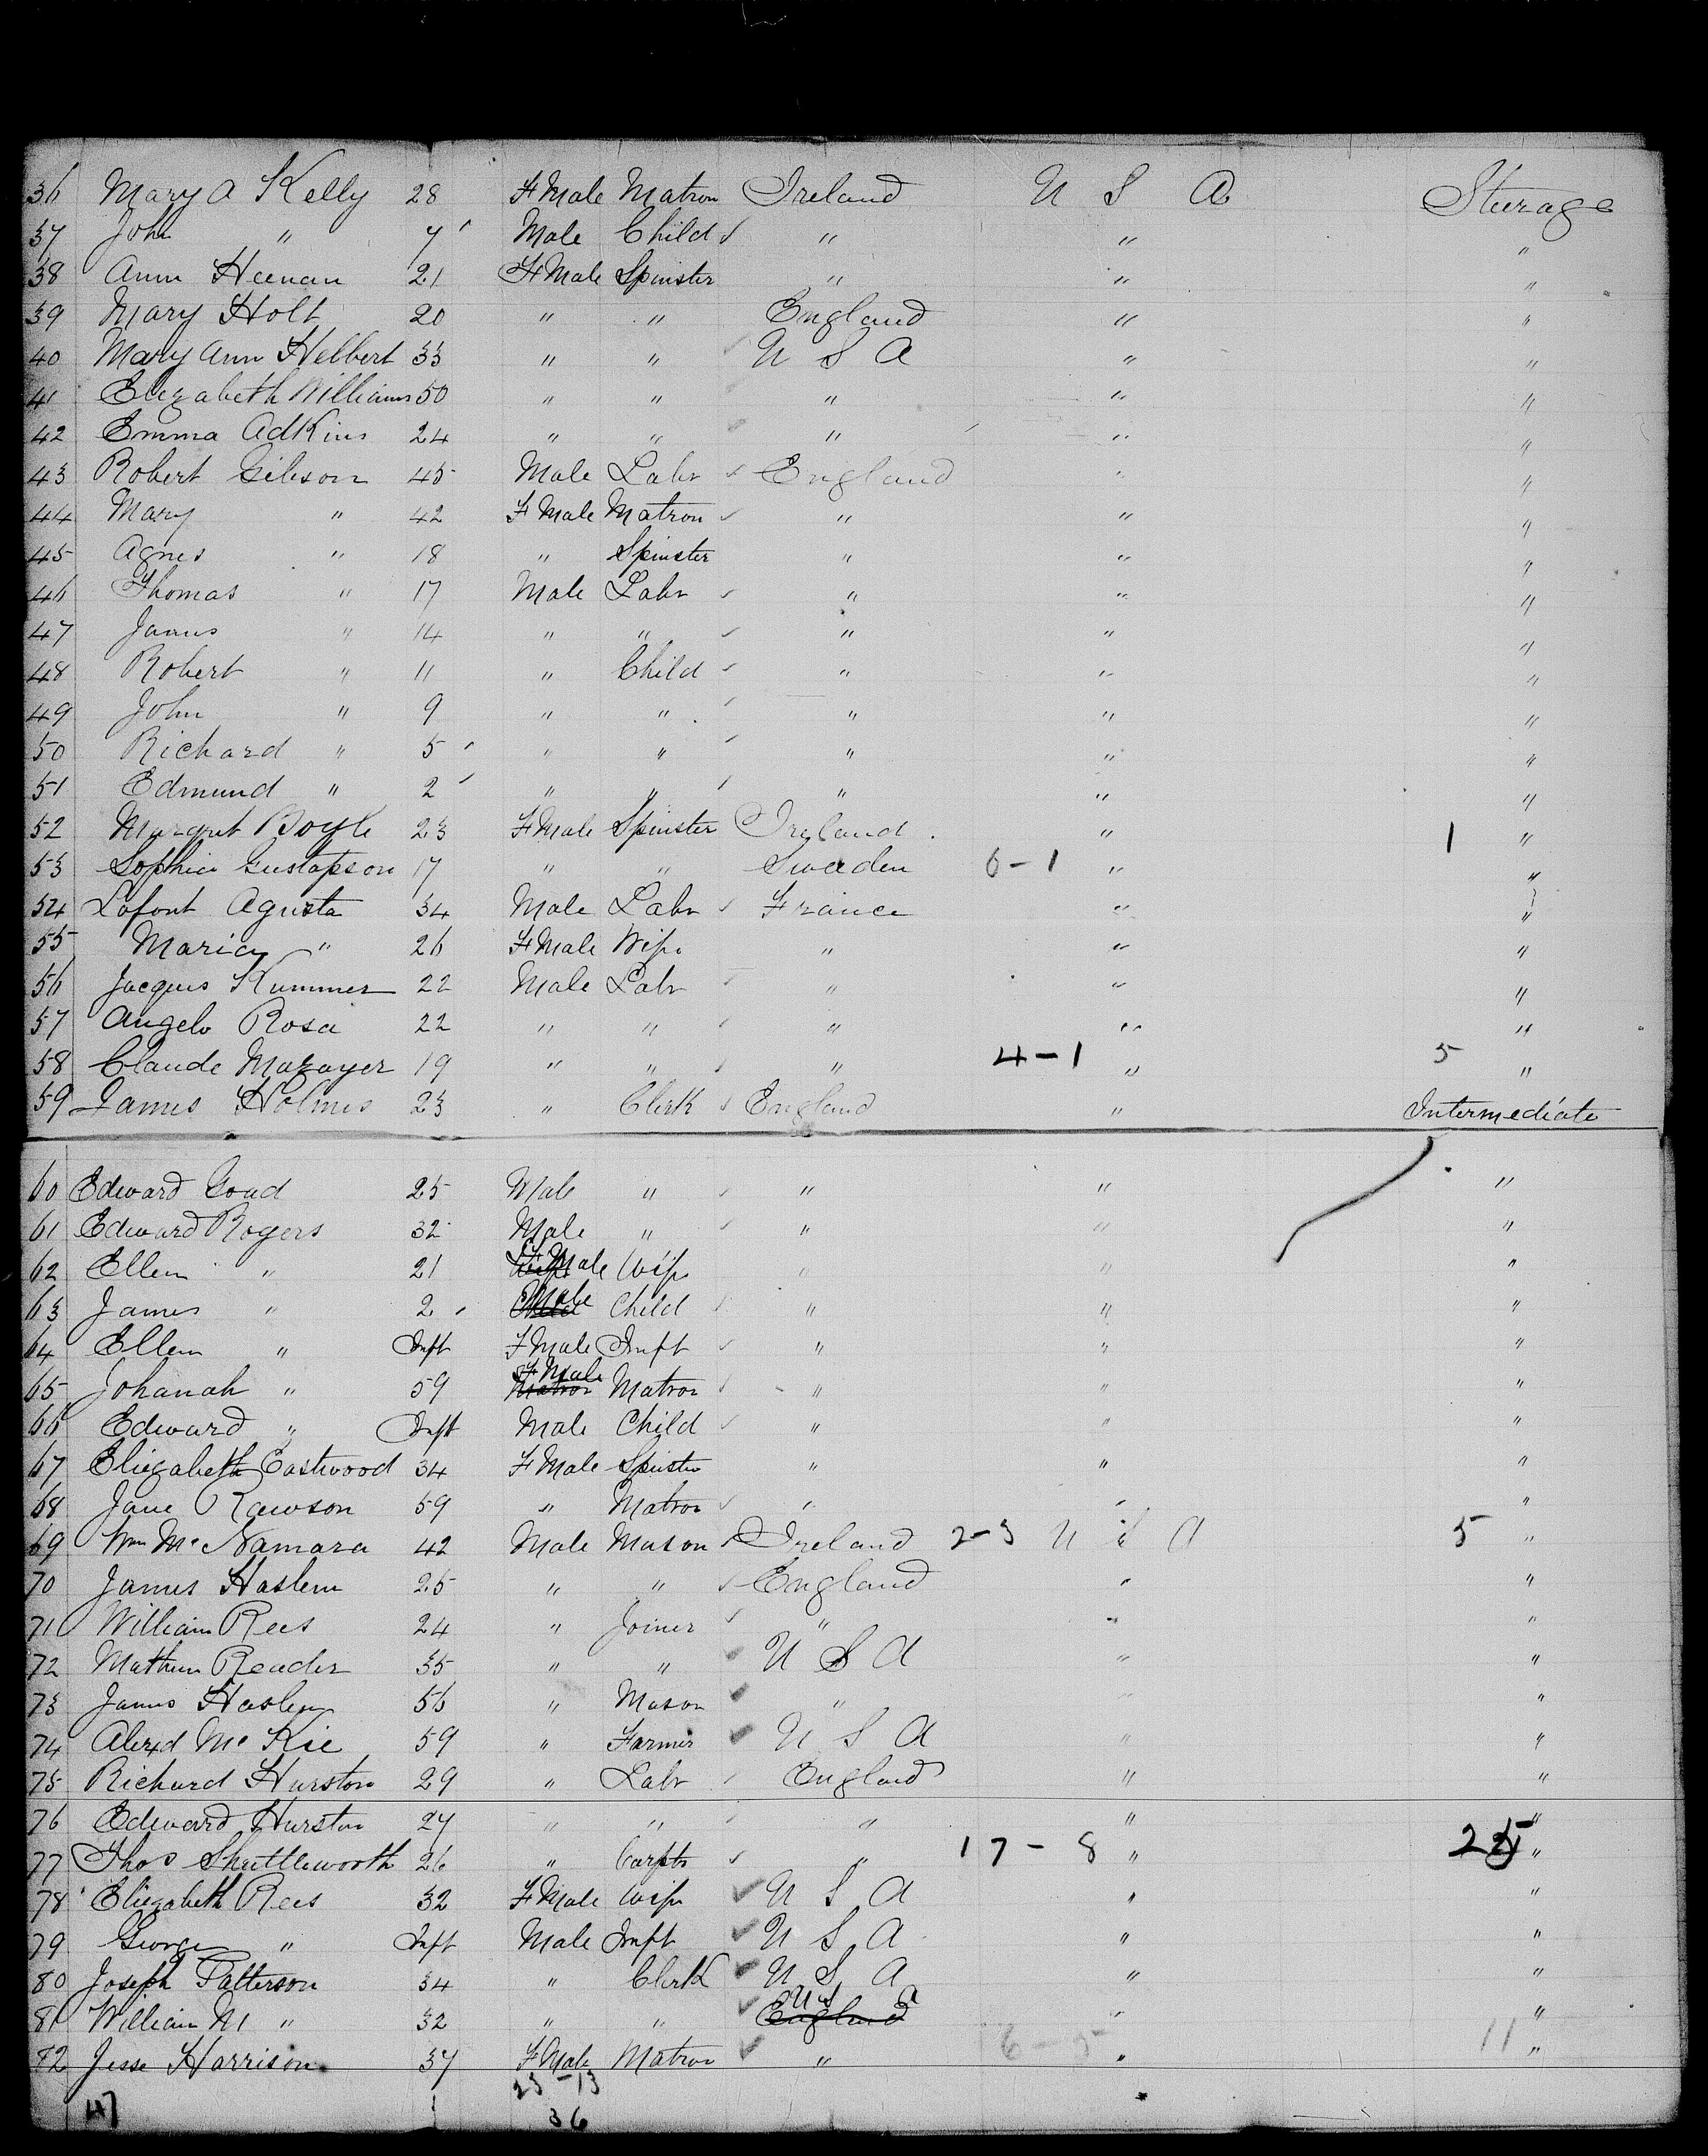 36 Mary A Kelly 28 F Male Matron Ireland U S A Steerage
37 John " 7 Male Child " " "
38 Ann Heenan 21 F Male Spinster " " "
39 Mary Holt 20 " " England " "
40 Mary Ann Helbert 33 " " U S A " "
41 Elizabeth Williams 50 " " " " "
42 Emma Adkins 24 " " " " "
43 Robert Gibson 45 Male Labr England " "
44 Mary " 42 F Male Matron " " "
45 Agnes " 18 " Spinster " " "
46 Thomas " 17 Male Labr " " "
47 James " 14 " " " " "
48 Robert " 11 " Child " " "
49 John " 9 " " " " "
50 Richard " 5 " " " " "
51 Edmund " 2 " " " " "
52 Margret Boyle 23 F Male Spinster Ireland " 1 "
53 Sophia Gustapson 17 " " Sweden 6-1 " "
54 Lafont Agusta 34 Male Labr France " "
55 Maria " 26 F Male Wife " " "
56 Jacques Kummer 22 Male Labr " " "
57 Angelo Rosa 22 " " " " "
58 Claude Mazoyer 19 " " " 4-1 " 5 "
59 James Holmes 23 " Clerk England " Intermediate
60 Edward Goad 25 Male " " " "
61 Edward Rogers 32 Male " " " "
62 Ellen " 21 F Male Wife " " "
63 James " 2 Male Child " " "
64 Ellen " Inft F Male Inft " " "
65 Johanah " 59 F Male Matron " " "
66 Edward " Inft Male Child " " "
67 Eliezabeth Eastwood 34 F Male Spinster " " "
68 Jane Rawson 59 " Matron " " "
69 Wm McNamara 42 Male Mason Ireland 2-3 U S A 5 "
70 James Haslem 25 " " England " "
71 William Rees 24 " Joiner " " "
72 Mathew Reader 35 " " U S A " "
73 James Haslem 56 " Mason " " "
74 Alexd McKie 59 " Farmer U S A " "
75 Richard Hurston 29 " Labr England " "
76 Edward Hurston 27 " " " " "
77 Thos Shuttleworth 26 " Carptr " 17-8 " 25 "
78 Eliezabeth Rees 32 F Male Wife U S A " "
79 George " Inft Male Inft U S A " "
80 Joseph Patterson 34 " Clerk U S A " "
81 William M " 32 " " England U S A " "
82 Jesse Harrison 37 F Male Matron " 6-5 " 11 "
23-13
47 36